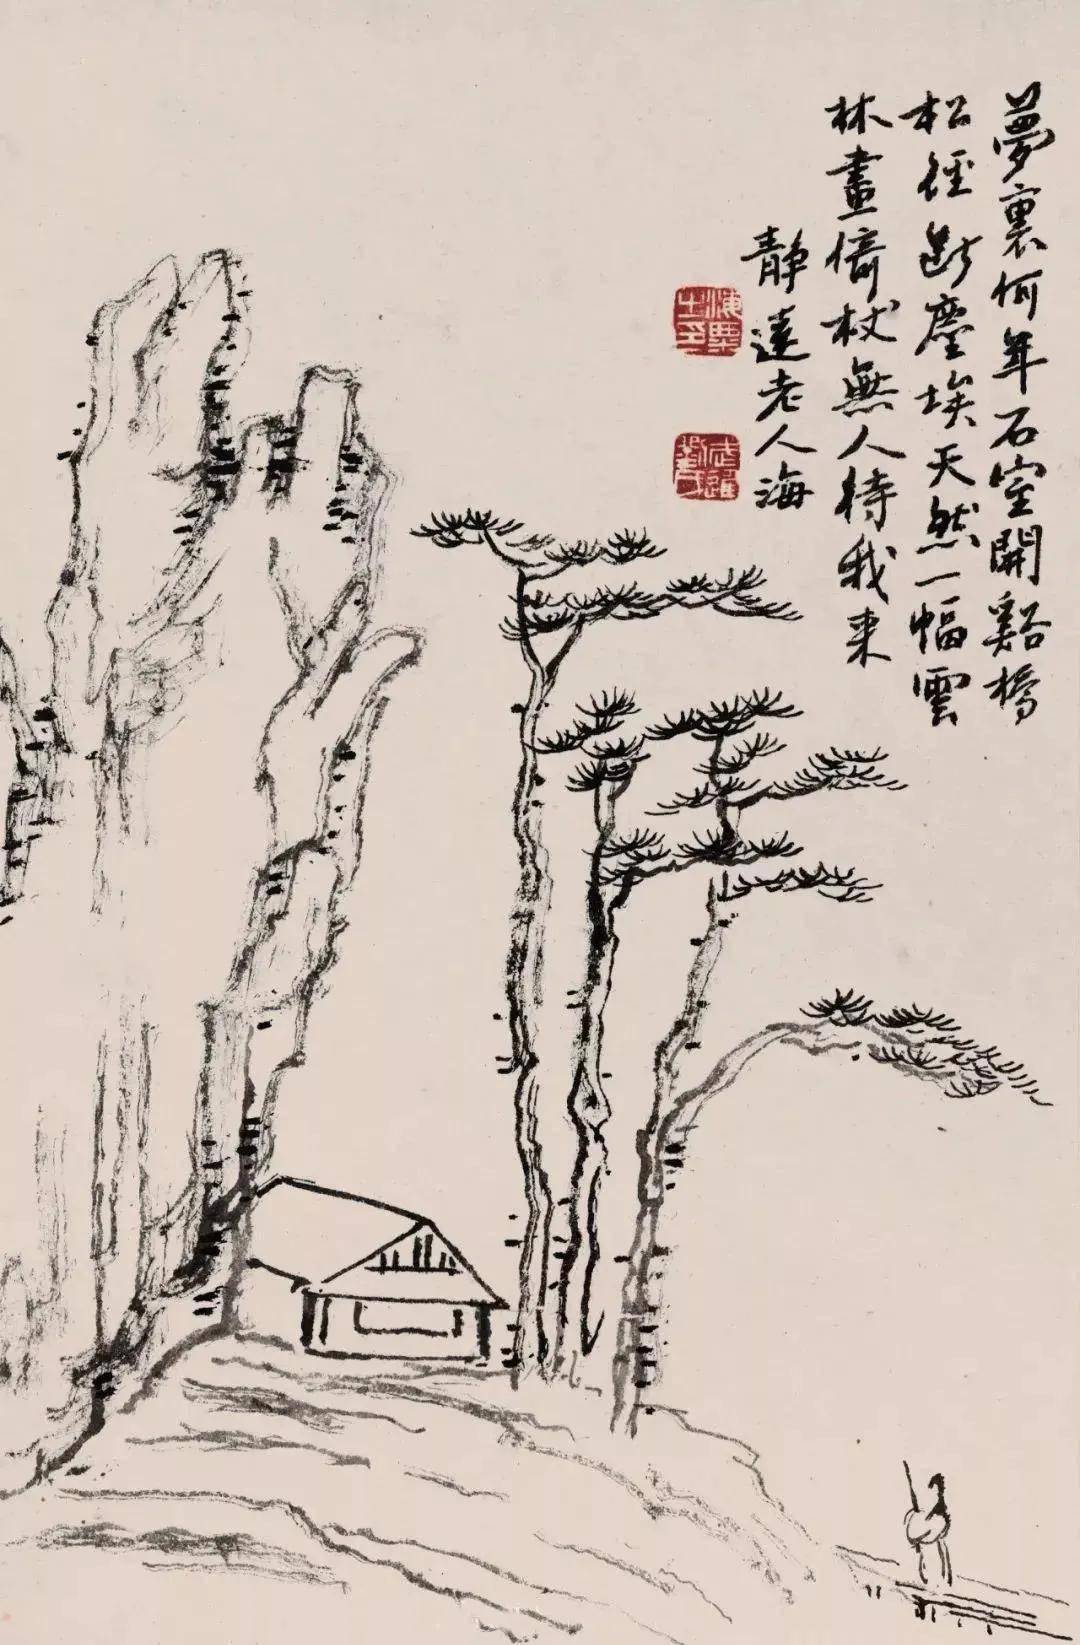 夢裏何年石室開谿橋
松徑斷塵埃天然一幅雲
林畫倚杖無人待我来
靜遠老人海
海粟之印